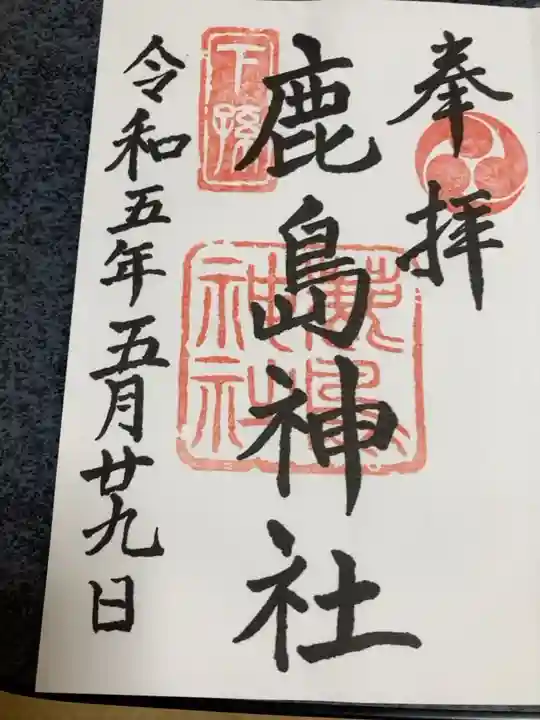 奉拝
鹿島神社
下孫
鹿島神社
令和五年五月廿九日